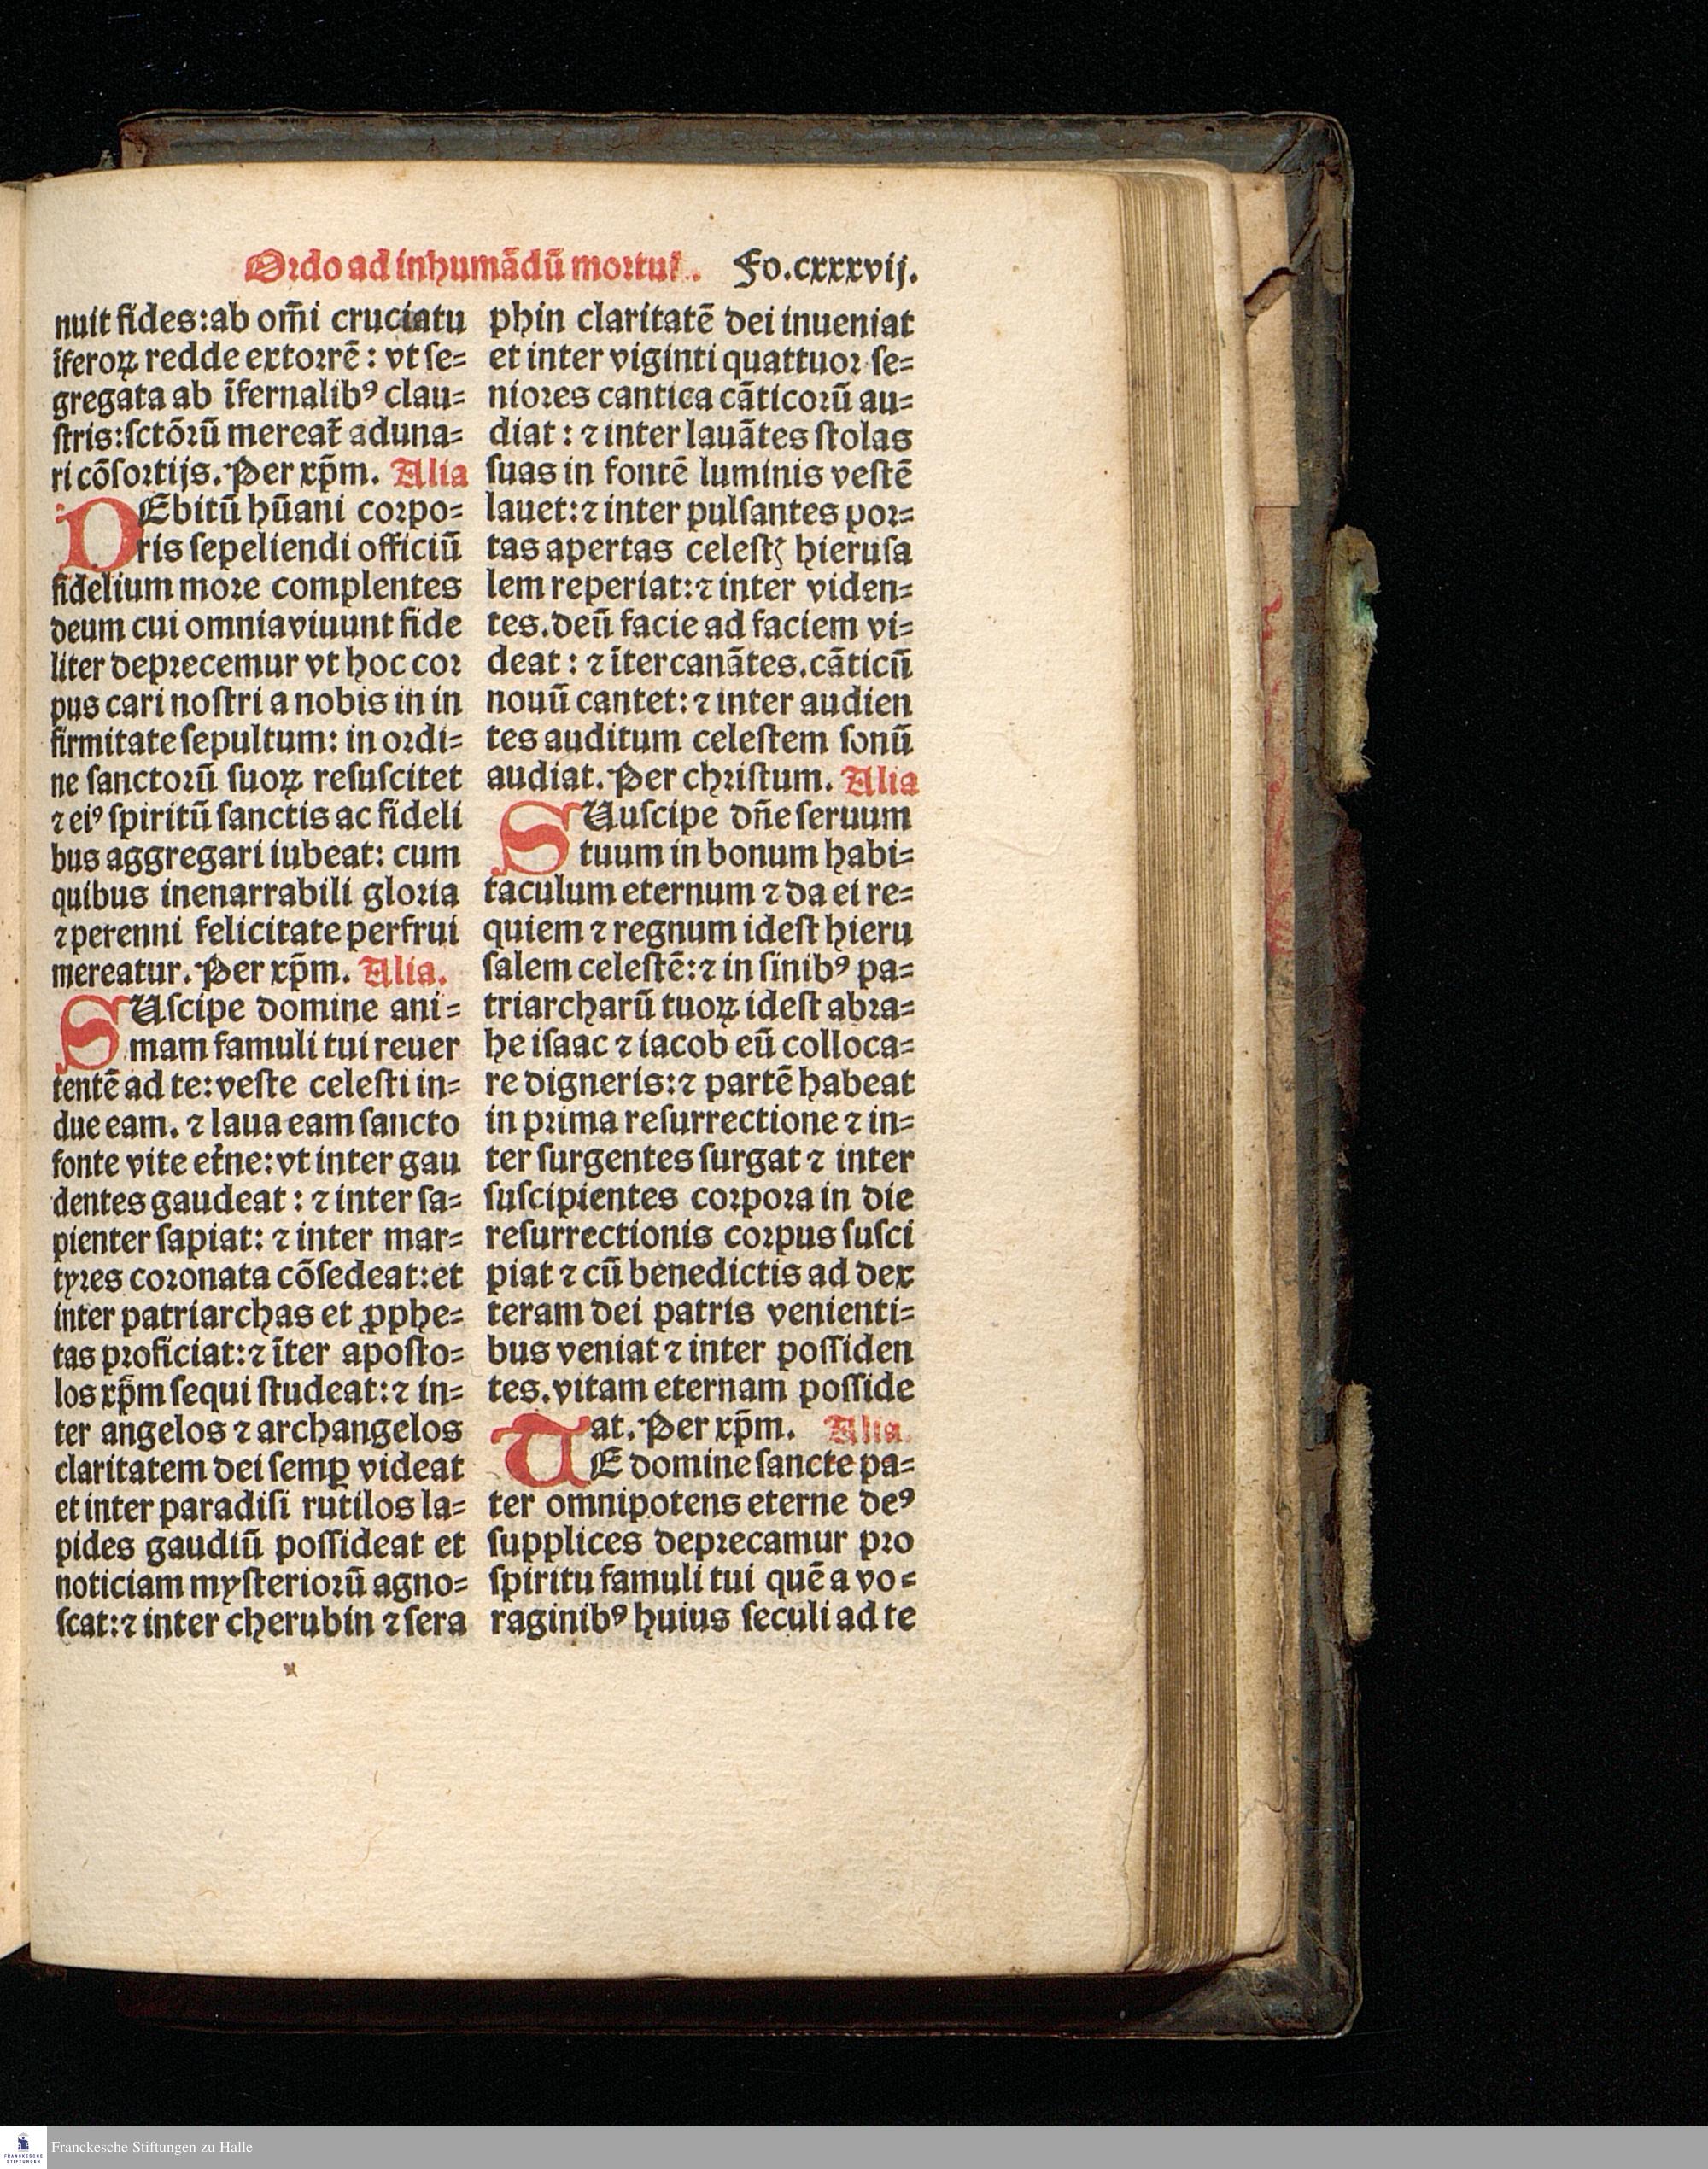 Ordo ad inhumãdũ mortuũ. Fo.cxxxvij.
nuit fides:ab om̃i cruciatu
ĩferoꝝ redde extorrẽ: vt ſe⸗
gregata ab ĩfernalibꝰ clau⸗
ſtris:ſctõrũ mereat᷑ aduna⸗
ri cõſortijs. Per xp̃m. Alia
DEbitũ hũani corpo⸗
ris ſepeliendi officiũ
fidelium more complentes
deum cui omnia viuunt fide
liter deprecemur vt hoc cor
pus cari noſtri a nobis in in
firmitate ſepultum: in ordi⸗
ne ſanctorũ ſuoꝝ reſuſcitet
⁊ eiꝰ ſpiritũ ſanctis ac fideli
bus aggregari iubeat: cum
quibus inenarrabili gloria
⁊ perenni felicitate perfrui
mereatur. Per xp̃m. Alia.
SUſcipe domine ani⸗
mam famuli tui reuer
tentẽ ad te:veſte celeſti in⸗
due eam. ⁊ laua eam ſancto
fonte vite et̃ne:vt inter gau
dentes gaudeat: ⁊ inter ſa⸗
pienter ſapiat: ⁊ inter mar⸗
tyres coronata cõſedeat:et
inter patriarchas et ꝓphe⸗
tas proficiat:⁊ ĩter apoſto⸗
los xp̃m ſequi ſtudeat:⁊ in⸗
ter angelos ⁊ archangelos
claritatem dei ſemꝑ videat
et inter paradiſi rutilos la⸗
pides gaudiũ poſſideat et
noticiam myſteriorũ agno⸗
ſcat:⁊ inter cherubin ⁊ ſera
phin claritatẽ dei inueniat
et inter viginti quattuor ſe⸗
niores cantica cãticorũ au⸗
diat: ⁊ inter lauãtes ſtolas
ſuas in fontẽ luminis veſtẽ
lauet:⁊ inter pulſantes por⸗
tas apertas celeſtꝫ hieruſa
lem reperiat:⁊ inter viden⸗
tes.deũ facie ad faciem vi⸗
deat: ⁊ ĩter canãtes.cãticũ
nouũ cantet:⁊ inter audien
tes auditum celeſtem ſonũ
audiat. Per chriſtum. Alia
SUuſcipe dñe ſeruum
tuum in bonum habi⸗
taculum eternum ⁊ da ei re⸗
quiem ⁊ regnum ideſt hieru
ſalem celeſtẽ:⁊ in ſinibꝰ pa⸗
triarcharũ tuoꝝ ideſt abra⸗
he iſaac ⁊ iacob eũ colloca⸗
re digneris:⁊ partẽ habeat
in prima reſurrectione ⁊ in⸗
ter ſurgentes ſurgat ⁊ inter
ſuſcipientes corpora in die
reſurrectionis corpus ſuſci
piat ⁊ cũ benedictis ad dex
teram dei patris venienti⸗
bus veniat ⁊ inter poſſiden
tes.vitam eternam poſſide
at. Per xp̃m. Alia.
TE domine ſancte pa⸗
ter omnipotens eterne deꝰ
ſupplices deprecamur pro
ſpiritu famuli tui quẽ a vo⸗
raginibꝰ huius ſeculi ad te
FRANCKESCHE
STIFTUNGEN
Franckesche Stiftungen zu Halle